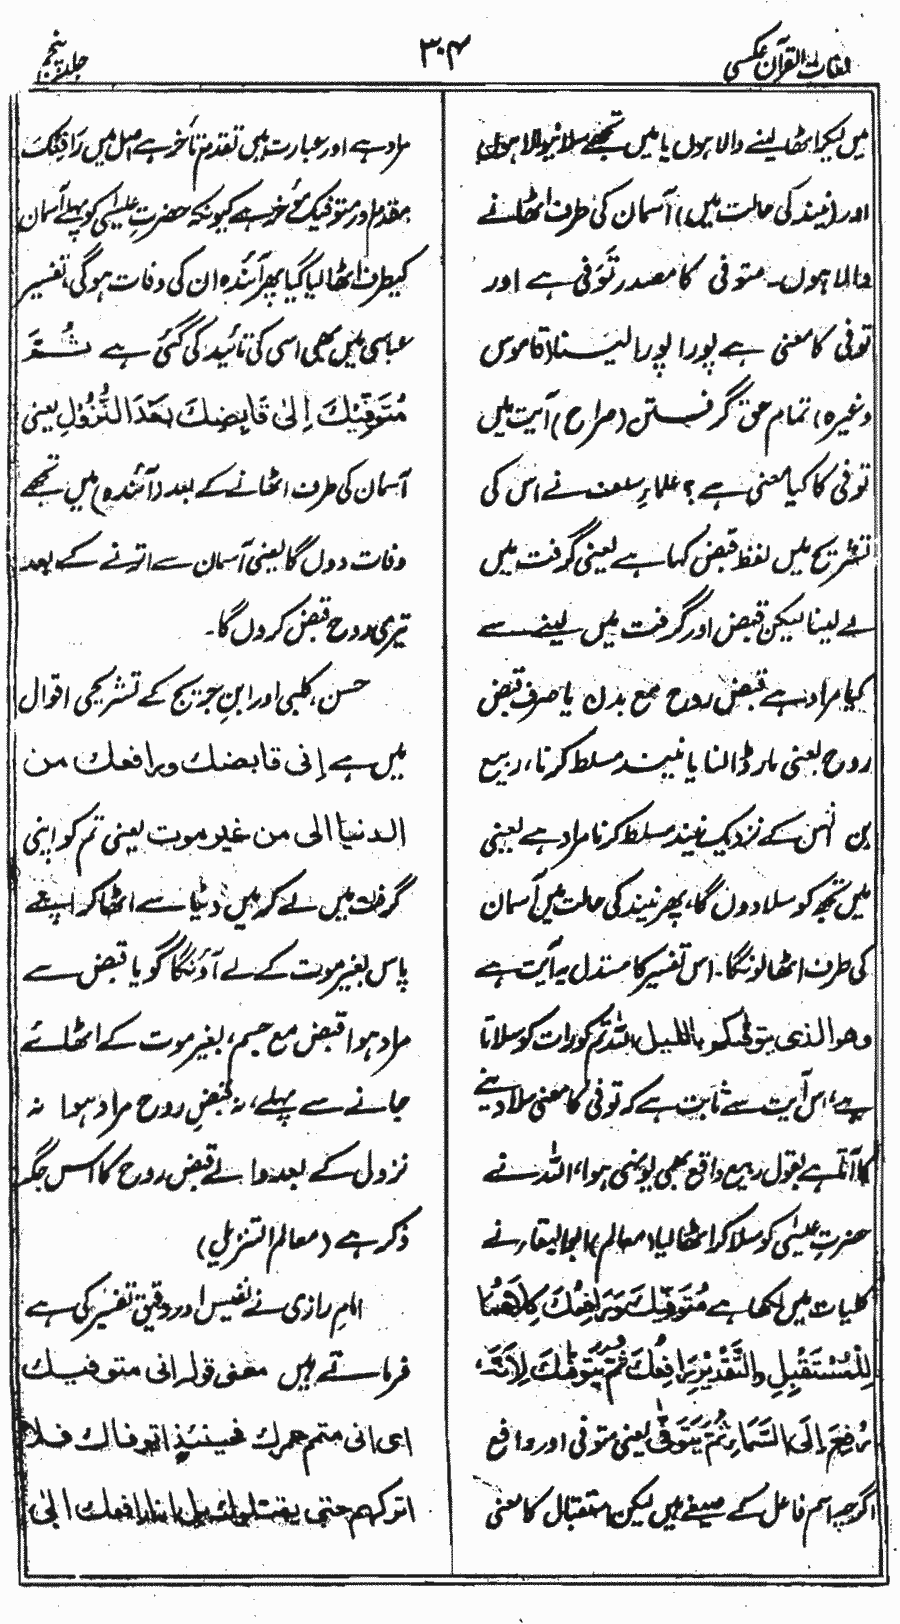 لغات القرآن عکسی
۳۰۴
جلد پنجم
میں لیکر اٹھا لینے والا ہوں یا میں تجھے سلا نیوالا ہوں
اور (نیند کی حالت میں) آسمان کی طرف اٹھانے
والا ہوں۔ متوفی کا مصدر تَوَفّی ہے اور
توفی کا معنی ہے پورا پورا لینا (قاموس
وغیرہ) تمام حق گرفتن (صراح) آیت میں
توفی کا کیا معنی ہے؟ علماءِ سلف نے اس کی
تشریح میں لفظ قبض کہا ہے یعنی گرفت میں
لے لینا لیکن قبض اور گرفت میں لینے سے
کیا مراد ہے قبض روح مع بدن یا صرف قبض
روح یعنی مار ڈالنا یا نیند مسلط کرنا، ربیع
بن انس کے نزدیک نیند مسلط کرنا مراد ہے یعنی
میں تجھ کو سلا دوں گا، پھر نیند کی حالت میں آسمان
کی طرف اٹھا لونگا۔ اس تفسیر کا مستدل یہ آیت ہے
وهو الذی يتوفىٰكم بالليل، اللہ تم کو رات کو سلاتا
ہے، اس آیت سے ثابت ہے کہ توفی کا معنی سلا دینے
کا آتا ہے بقول ربیع واقع بھی یونہی ہوا، اللہ نے
حضرت عیسیٰ کو سلا کر اٹھا لیا (معالم) ابوالبقاء نے
کلیات میں لکھا ہے مُتَوَفِّيْكَ وَرَافِعُكَ كِلَاهُمَا
لِلْمُسْتَقْبِلِ وَالتَّقْدِيْرُ رَافِعُكَ ثُمَّ مُتَوَفِّيْكَ لِاَنَّهٗ
رُفِعَ اِلَى السَّمَاءِ ثُمَّ يُتَوَفّٰى یعنی متوفی اور رافع
اگرچہ اسم فاعل کے صیغے ہیں لیکن استقبال کا معنی
مراد ہے اور عبارت میں تقدم تأخر ہے اصل میں رَافِعُكَ
مقدم اور متوفیک مؤخر ہے کیونکہ حضرت عیسیٰ کو پہلے آسمان
کیطرف اٹھا لیا گیا پھر آئندہ ان کی وفات ہوگی، تفسیر
عباسی میں بھی اسی کی تائید کی گئی ہے ثُمَّ
مُتَوَفِّيْكَ اِلٰى قَابِضِكَ بَعْدَ النُّزُوْلِ یعنی
آسمان کی طرف اٹھانے کے بعد (آئندہ) میں تجھے
وفات دوں گا یعنی آسمان سے اترنے کے بعد
تیری روح قبض کر دوں گا۔
حسن، کلبی اور ابن جریج کے تشریحی اقوال
میں ہے اِنی قابضك ورافعك من
الدنيا الى من غير موت یعنی تم کو اپنی
گرفت میں لے کر میں دنیا سے اٹھا کر اپنے
پاس بغیر موت کے لے آؤنگا گویا قبض سے
مراد ہوا قبض مع جسم، بغیر موت کے اٹھائے
جانے سے پہلے، نہ قبضِ روح مراد ہوا نہ
نزول کے بعد والے قبض روح کا اس جگہ
ذکر ہے (معالم التنزیل)
امام رازی نے نفیس اور دقیق تفسیر کی ہے
فرماتے ہیں معنى قوله انى متوفيك
اى انى متمم عمرك فحينئذ اتوفاك فلا
اتركهم حتى يقتلوك بل انا رافعك الى